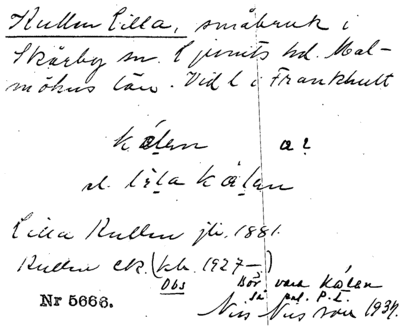 Kullen Lilla, småbruk i
Skårby sn. Ljunits hd. Mal-
möhus län. Vid l i Frankhult
kålen a2
el. lila kålen
Lilla Kullen jb. 1881.
Kullen ek. (kb. 1927–)
Obs Bör vara kålen
Nr 5666.
Nils Nilsson 1934.